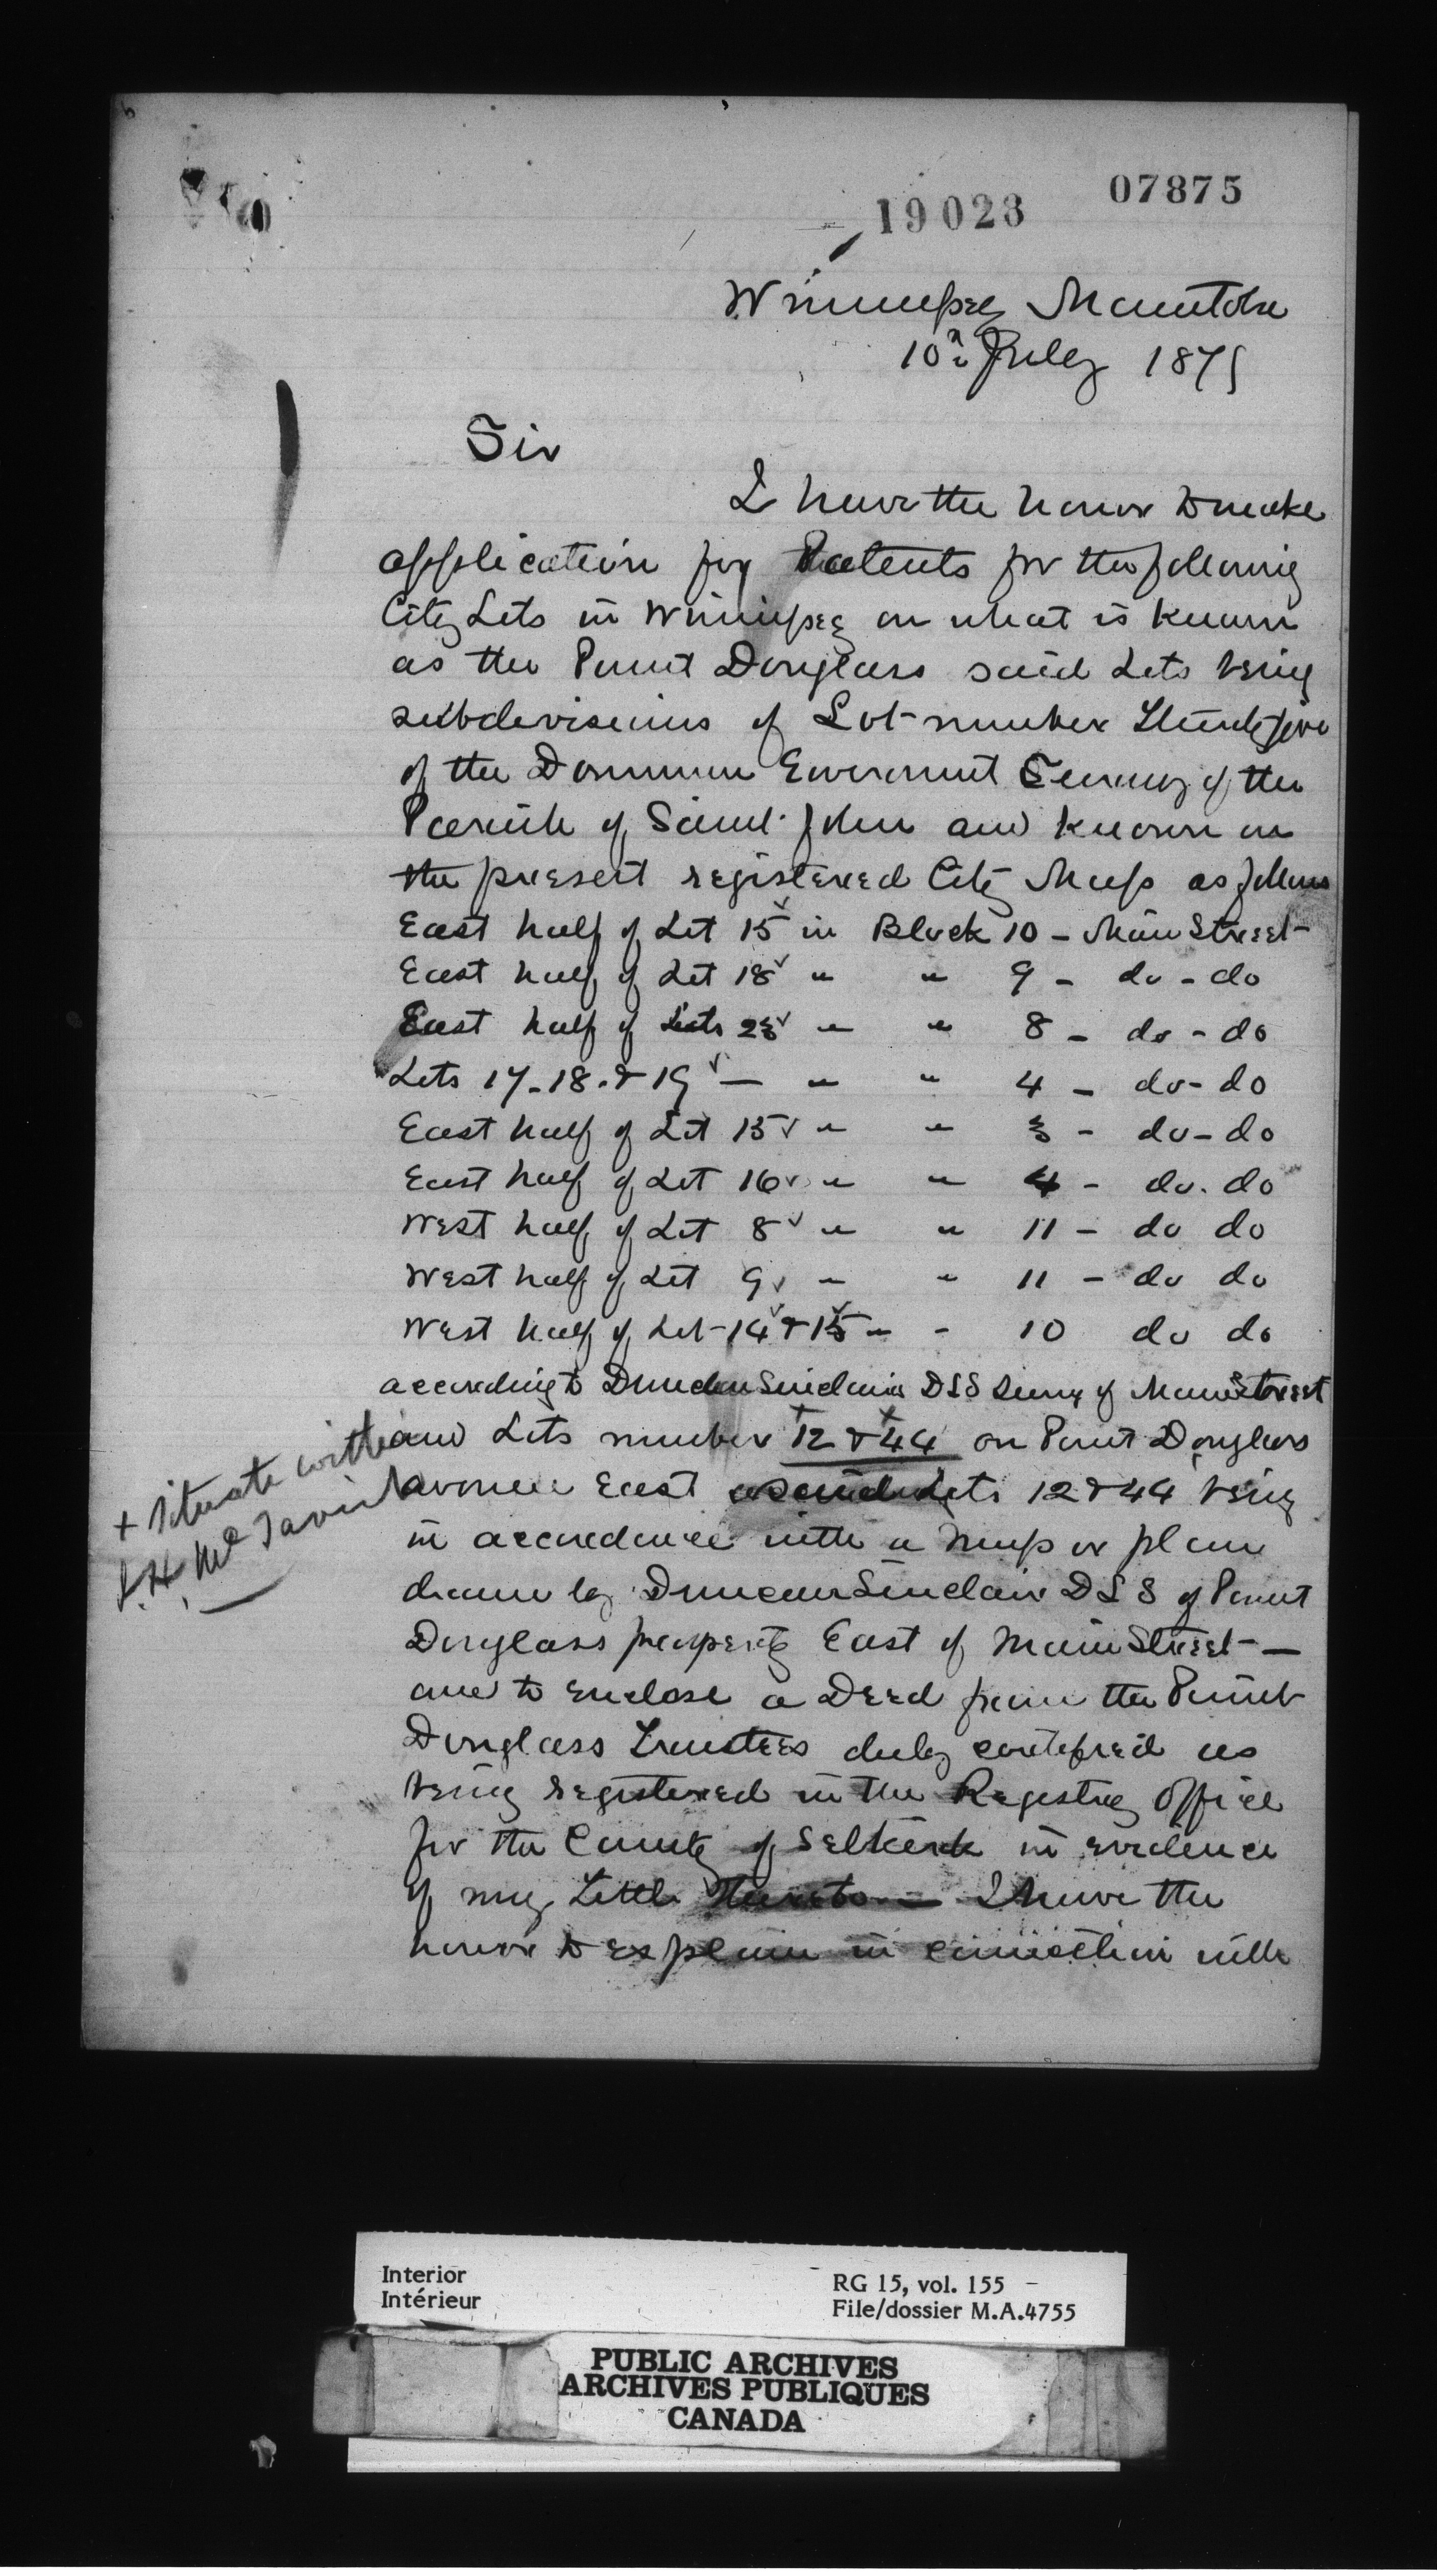 19023
07875
Winnipeg Manitoba
10th July 1875
Sir
I have the honor to make
application for Patents for the following
City Lots in Winnipeg on what is known
as the Point Douglass said Lots being
subdivisions of Lot number Thirty five
of the Dominion Government Survey of the
Parish of Saint John and known on
the present registered City Map as follows
East half of Lot 15 in Block 10 - Main Street
East half of Lot 18 " " 9 - do - do
East half of Lots " " 8 - do - do
Lots 17-18-& 19 — " " 4 - do - do
East half of Lot 15 " " 3 - do - do
East half of Lot 16 " " 4 - do. do
West half of Lot 8 " " 11 - do do
West half of Lot 9 " " 11 - do do
West half of Lot 14 & 15 " - 10 do do
according to Duncan Sinclairs DLS Survey of Main Street
and Lots number 12 & 44 on Point Douglass
+ situate with
J. H. McTavish
avenue East said Lots 12 & 44 being
in accordance with a map or plan
drawn by Duncan Sinclair DLS of Point
Douglass property East of Main Street —
and to enclose a Deed from the Point
Douglass Trustees duly certified as
being registered in the Registry Office
for the County of Selkirk in evidence
of my Title thereto — I have the
honor to explain in connection with
Interior
Intérieur
RG 15, vol. 155
File/dossier M.A.4755
PUBLIC ARCHIVES
ARCHIVES PUBLIQUES
CANADA